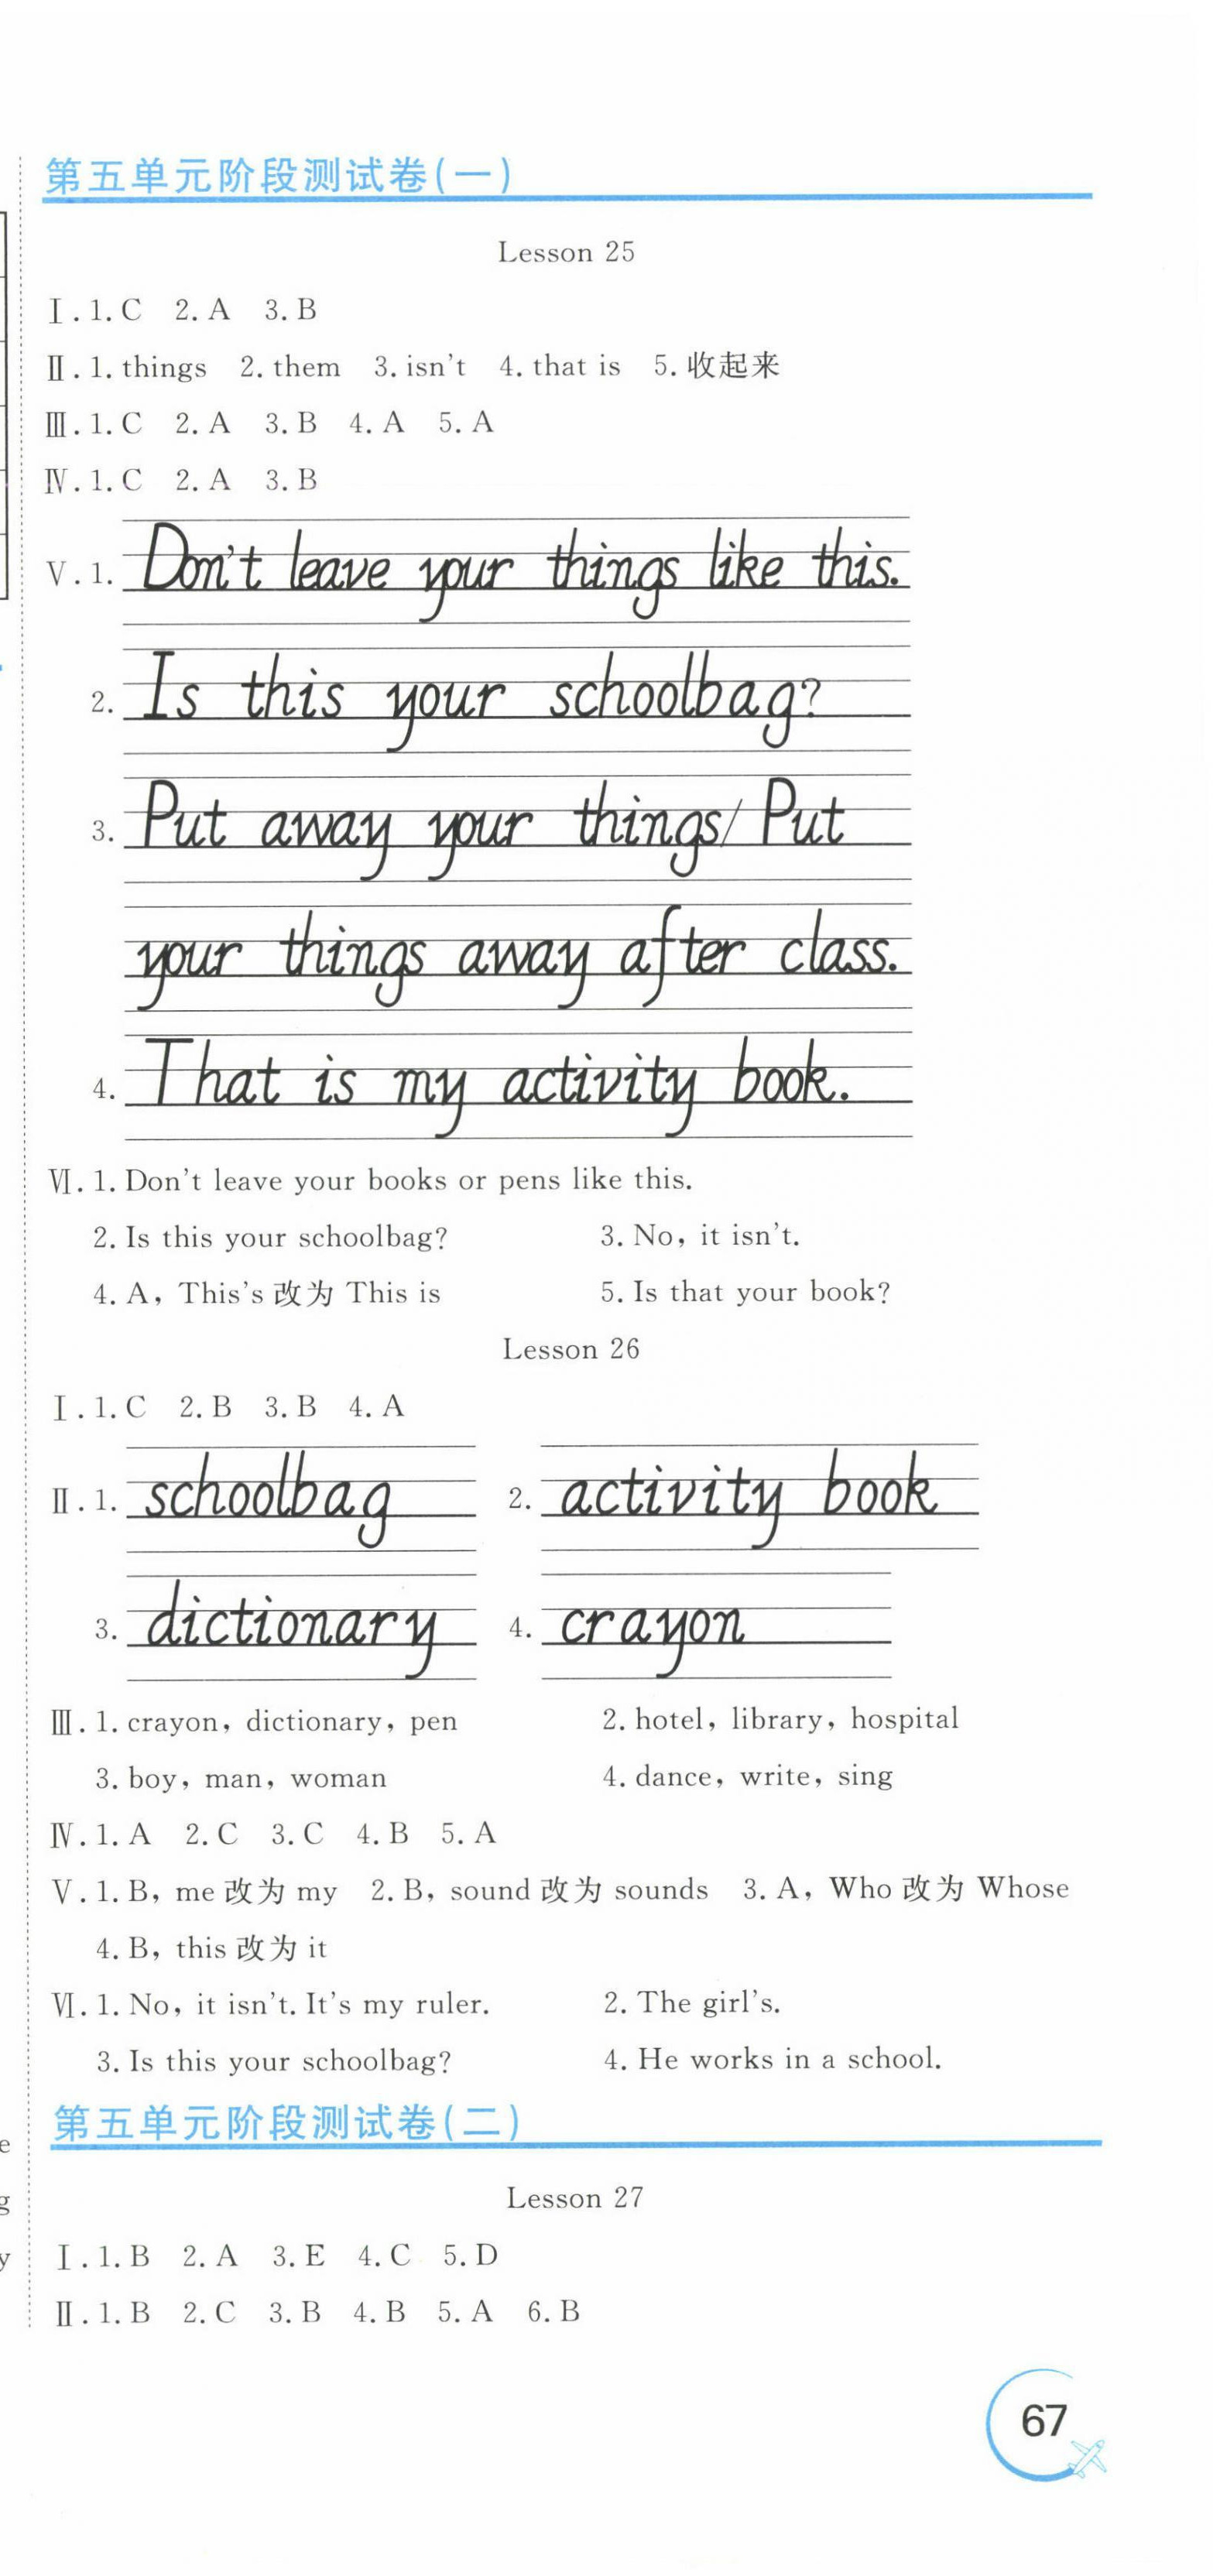 第五单元阶段测试卷(一)
Lesson 25
Ⅰ.1.C 2.A 3.B
Ⅱ.1.things 2.them 3.isn't 4.that is 5.收起来
Ⅲ.1.C 2.A 3.B 4.A 5.A
Ⅳ.1.C 2.A 3.B
Ⅴ.1. Don't leave your things like this.
2. Is this your schoolbag?
3. Put away your things/Put
your things away after class.
4. That is my activity book.
Ⅵ.1.Don't leave your books or pens like this.
2.Is this your schoolbag? 3.No, it isn't.
4.A, This's 改为 This is 5.Is that your book?
Lesson 26
Ⅰ.1.C 2.B 3.B 4.A
Ⅱ.1. schoolbag 2. activity book
3. dictionary 4. crayon
Ⅲ.1.crayon, dictionary, pen 2.hotel, library, hospital
3.boy, man, woman 4.dance, write, sing
Ⅳ.1.A 2.C 3.C 4.B 5.A
Ⅴ.1.B, me 改为 my 2.B, sound 改为 sounds 3.A, Who 改为 Whose
4.B, this 改为 it
Ⅵ.1.No, it isn't. It's my ruler. 2.The girl's.
3.Is this your schoolbag? 4.He works in a school.
第五单元阶段测试卷(二)
Lesson 27
Ⅰ.1.B 2.A 3.E 4.C 5.D
Ⅱ.1.B 2.C 3.B 4.B 5.A 6.B
67